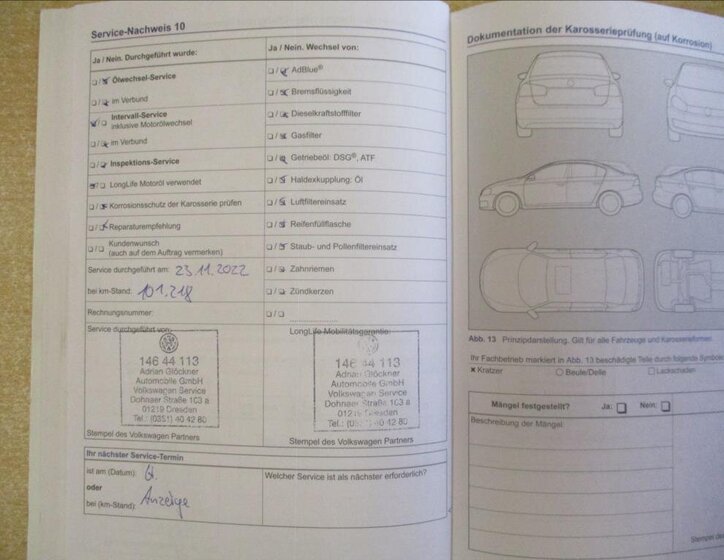 Service-Nachweis 10
Ja / Nein. Durchgeführt wurde:
Ölwechsel-Service
im Verbund
Intervall-Service
inklusive Motorölwechsel
im Verbund
Inspektions-Service
LongLife Motoröl verwendet
Korrosionsschutz der Karosserie prüfen
Reparaturempfehlung
Kundenwunsch
(auch auf dem Auftrag vermerken)
Service durchgeführt am: 23.11.2022
bei km-Stand: 101.218
Rechnungsnummer:
Service durchgeführt von:
146 44 113
Adrian Glöckner
Automobile GmbH
Volkswagen Service
Dohnaer Straße 103 a
01219 Dresden
Tel.: (0351) 40 42 80
Stempel des Volkswagen Partners
Ja / Nein. Wechsel von:
AdBlue®
Bremsflüssigkeit
Dieselkraftstofffilter
Gasfilter
Getriebeöl: DSG®, ATF
Haldexkupplung: Öl
Luftfiltereinsatz
Reifenfüllflasche
Staub- und Pollenfiltereinsatz
Zahnriemen
Zündkerzen
LongLife Mobilitätsgarantie:
146 44 113
Adrian Glöckner
Automobile GmbH
Volkswagen Service
Dohnaer Straße 103 a
01219 Dresden
Tel.: (0351) 40 42 80
Stempel des Volkswagen Partners
Ihr nächster Service-Termin
ist am (Datum):
oder
bei (km-Stand): Anzeige
Welcher Service ist als nächster erforderlich?
Dokumentation der Karosserieprüfung (auf Korrosion)
Abb. 13 Prinzipdarstellung. Gilt für alle Fahrzeuge und Karosserieformen.
Ihr Fachbetrieb markiert in Abb. 13 beschädigte Teile durch folgende
Kratzer
Beule/Delle
Lackschaden
Mängel festgestellt?
Ja:
Nein:
Beschreibung der Mängel:
Stempel des